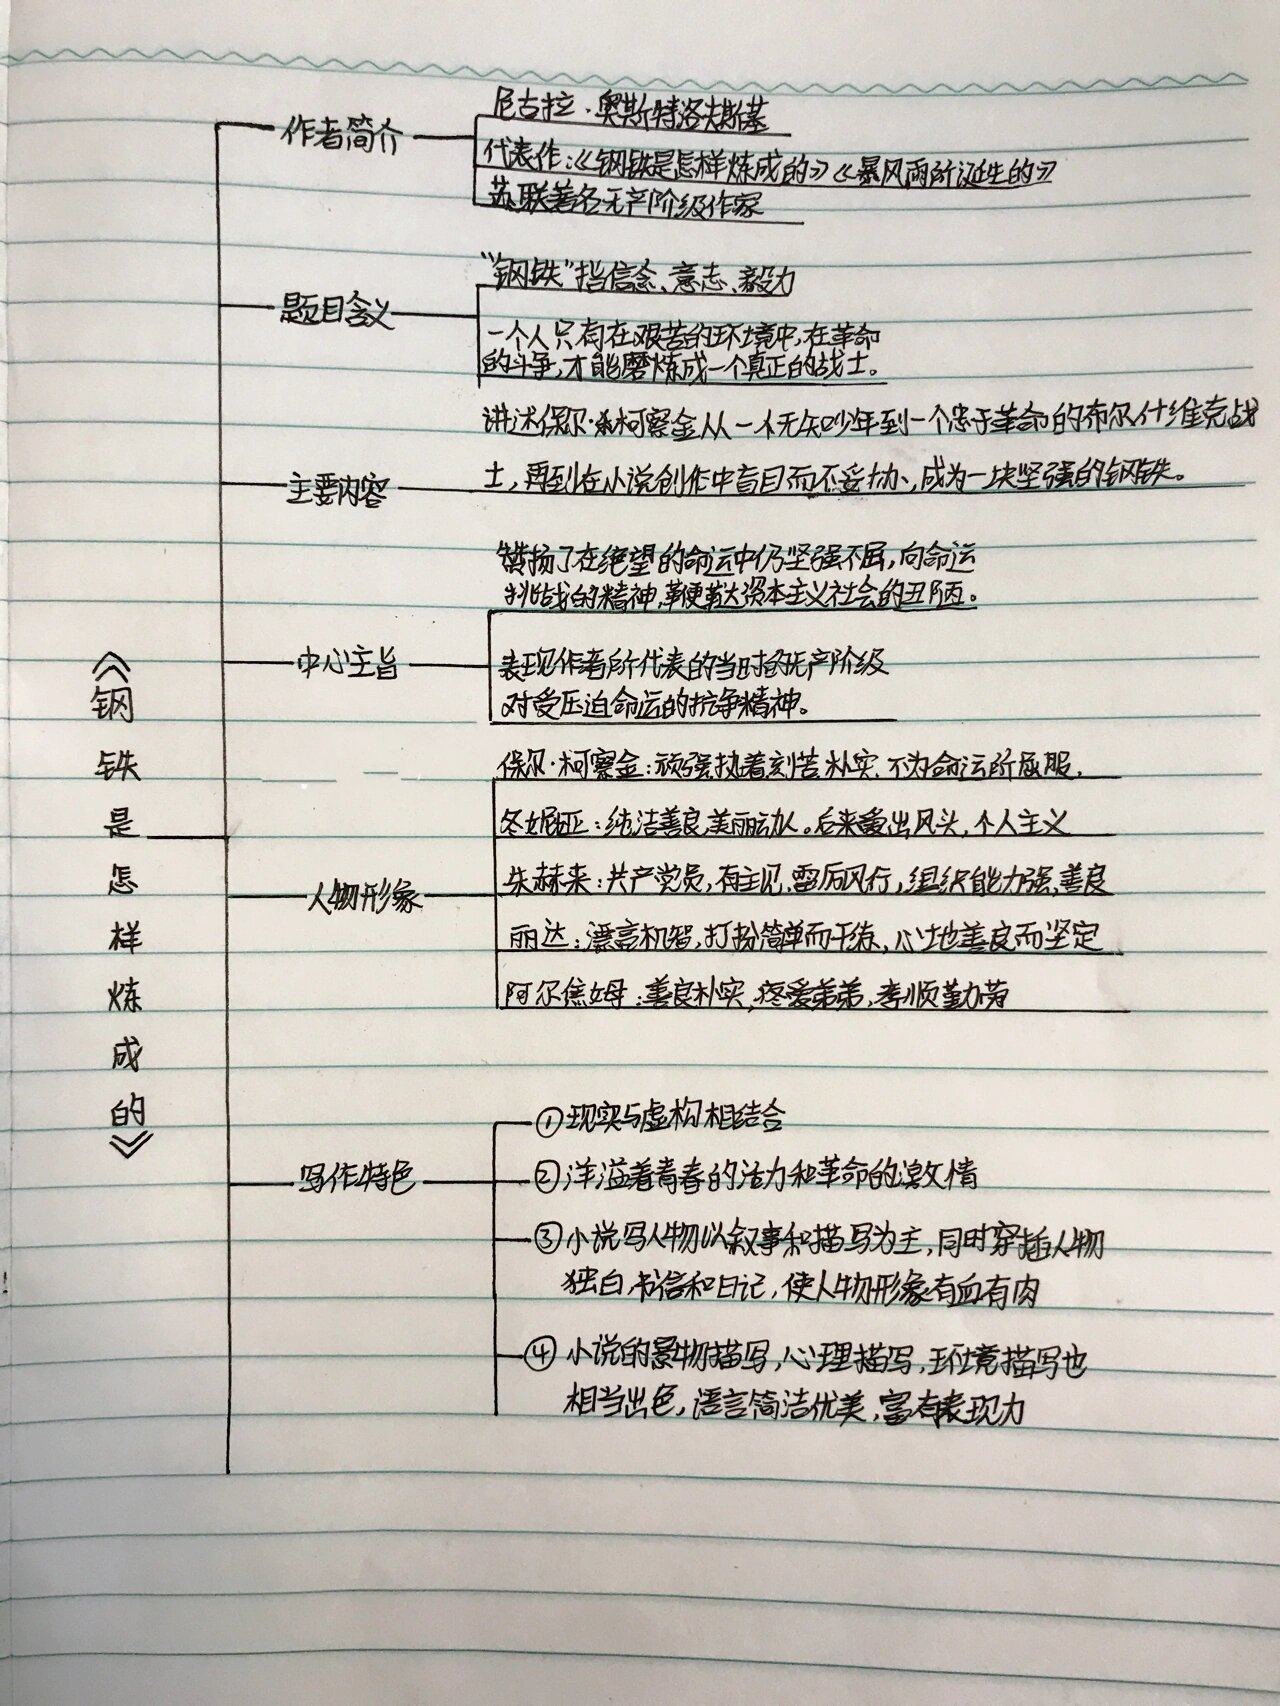 《钢铁是怎样炼成的》
作者简介
尼古拉·奥斯特洛夫斯基
代表作:《钢铁是怎样炼成的》《暴风雨所诞生的》
苏联著名无产阶级作家
题目含义
"钢铁"指信念、意志、毅力
一个人只有在艰苦的环境中,在革命
的斗争,才能磨炼成一个真正的战士。
主要内容
讲述保尔·柯察金从一个无知少年到一个忠于革命的布尔什维克战
士,再到在小说创作中盲目而不妥协、成为一块坚强的钢铁。
中心主旨
赞扬了在绝望的命运中仍坚强不屈,向命运
挑战的精神,鞭挞资本主义社会的丑陋。
表现作者所代表的当时的无产阶级
对受压迫命运的抗争精神。
人物形象
保尔·柯察金:顽强执着刻苦朴实、不为命运所屈服.
冬妮亚:纯洁善良美丽动人。后来爱出风头,个人主义
朱赫来:共产党员,有主见,雷厉风行,组织能力强,善良
丽达:漂亮机智,打扮简单而干练,心地善良而坚定
阿尔焦姆:善良朴实,疼爱弟弟,孝顺勤劳
写作特色
①现实与虚构相结合
②洋溢着青春的活力和革命的激情
③小说写人物以叙事和描写为主,同时穿插人物
独白,书信和日记,使人物形象有血有肉
④小说的景物描写,心理描写,环境描写也
相当出色,语言简洁优美,富有表现力